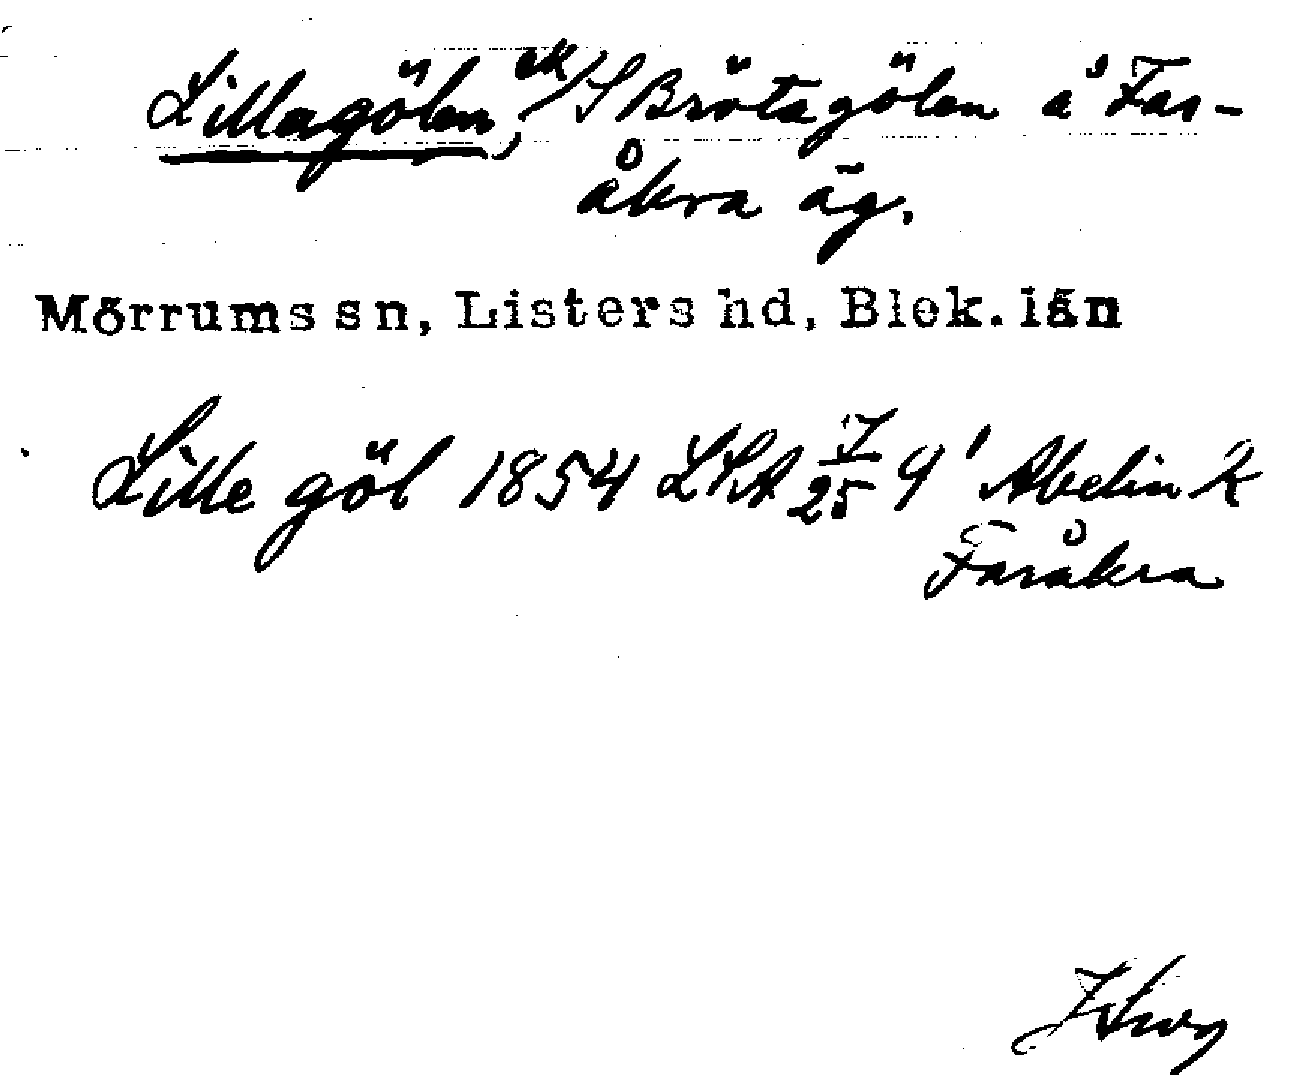 Lillagölen, ek/S Brötagölen å Far-
åkra äg.
Mörrums sn, Listers hd, Blek. län
Lille göl 1854 LSA 7/25 9' Abelin k
Faråkra